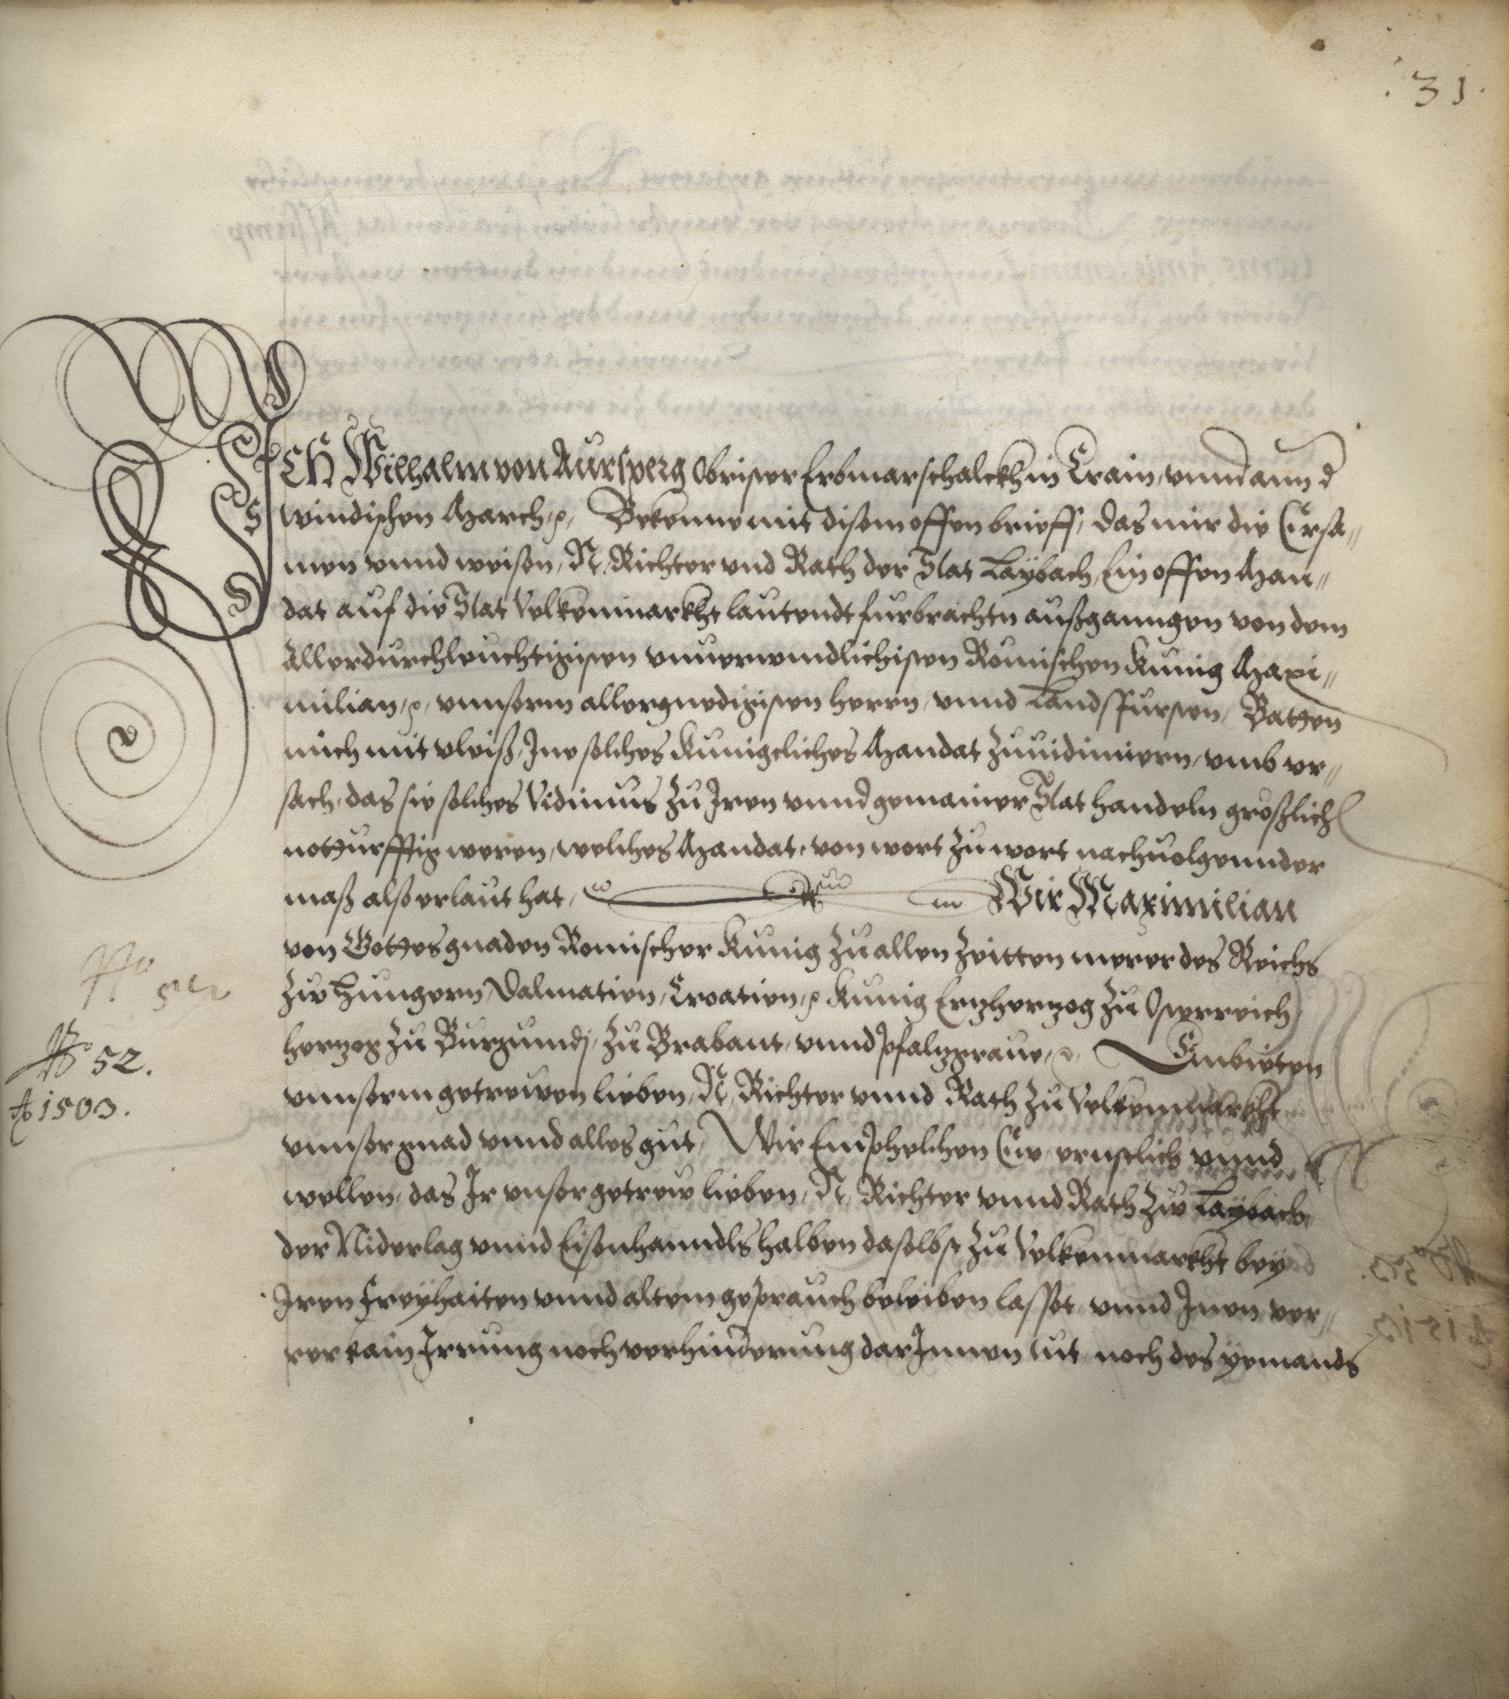 .31.
ICH Wilhalm von Aursperg Obrister Erbmarschalckh in Crain, vnnd ann d
windischen March, ꝛc, Bekenne mit disem offen brieff, das mir die Ersa„
men vnnd weisen, N, Richter vnd Rath der Stat Laybach, Ein offen Man„
dat auf die Stat Volkenmarkht lautendt furbrachtn außganngen von dem
Allerdurchleuchtigisten vnuerwindlichisten Romischen Kunig Maxi„
milian, ꝛc, vnnserm allergnedigisten herrn, vnnd Landsfursten, Batten
mich mit vleiß, Ine solches Kunigcliches Mandat zuuidimiern, vmb vr„
sach, das sie solches Vidimus zu Iren vnnd gemainer Stat handeln größlich
notturfftig weren, welches Mandat, von wort zu wort nachuolgennder
maß also erlaut hat, Wir Maximilian
von Gottes gnaden Romischer Kunig zu allen Zeitten merer des Reichs
zw Hungern, Dalmatien, Croatien, ꝛc Kunig Ertzhertzog zu Osterreich,
hertzog zu Burgundj, zu Brabant, vnnd Pfaltzgraue, ꝛc, Embieten
vnnserm getrewen lieben, N, Richter vnnd Rath zu Volkenmarkht
No 52.
Ao 1503.
vnnser gnad vnnd alles gut, Wir Emphelchen Eüe ernstlich vnnd
wellen, das Ir vnser getrew lieben, N, Richter vnnd Rath zw Laybach
der Niderlag vnnd Eisenhanndls halben daselbst zu Volkenmarkht bey
Iren Freyhaiten vnnd altem geprauch beleiben lasset, vnnd Inen ver„
rer kain Irrung noch verhinderung darInnen tut noch des yemands